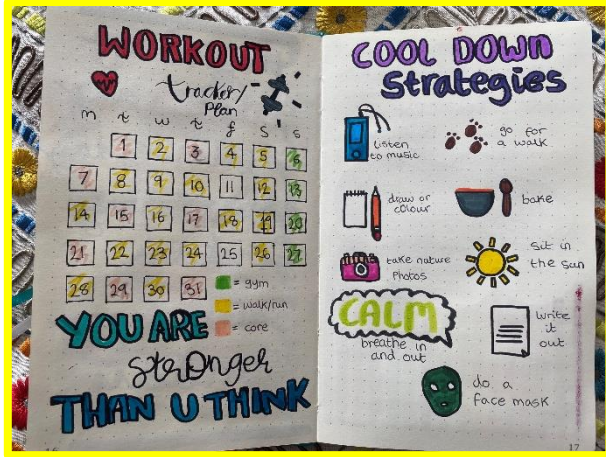 WORKOUT
tracker/
Plan
m t w t f s s
1 2 3 4 5 6
7 8 9 10 11 12 13
14 15 16 17 18 19 20
21 22 23 24 25 26 27
28 29 30 31
= gym
= walk/run
= core
YOU ARE
strOnger
THAN U THINK
COOL DOWN
Strategies
listen
to music
go for
a walk
draw or
colour
bake
take nature
photos
sit in
the sun
CALM
breathe in
and out
write
it
out
do a
face mask
17